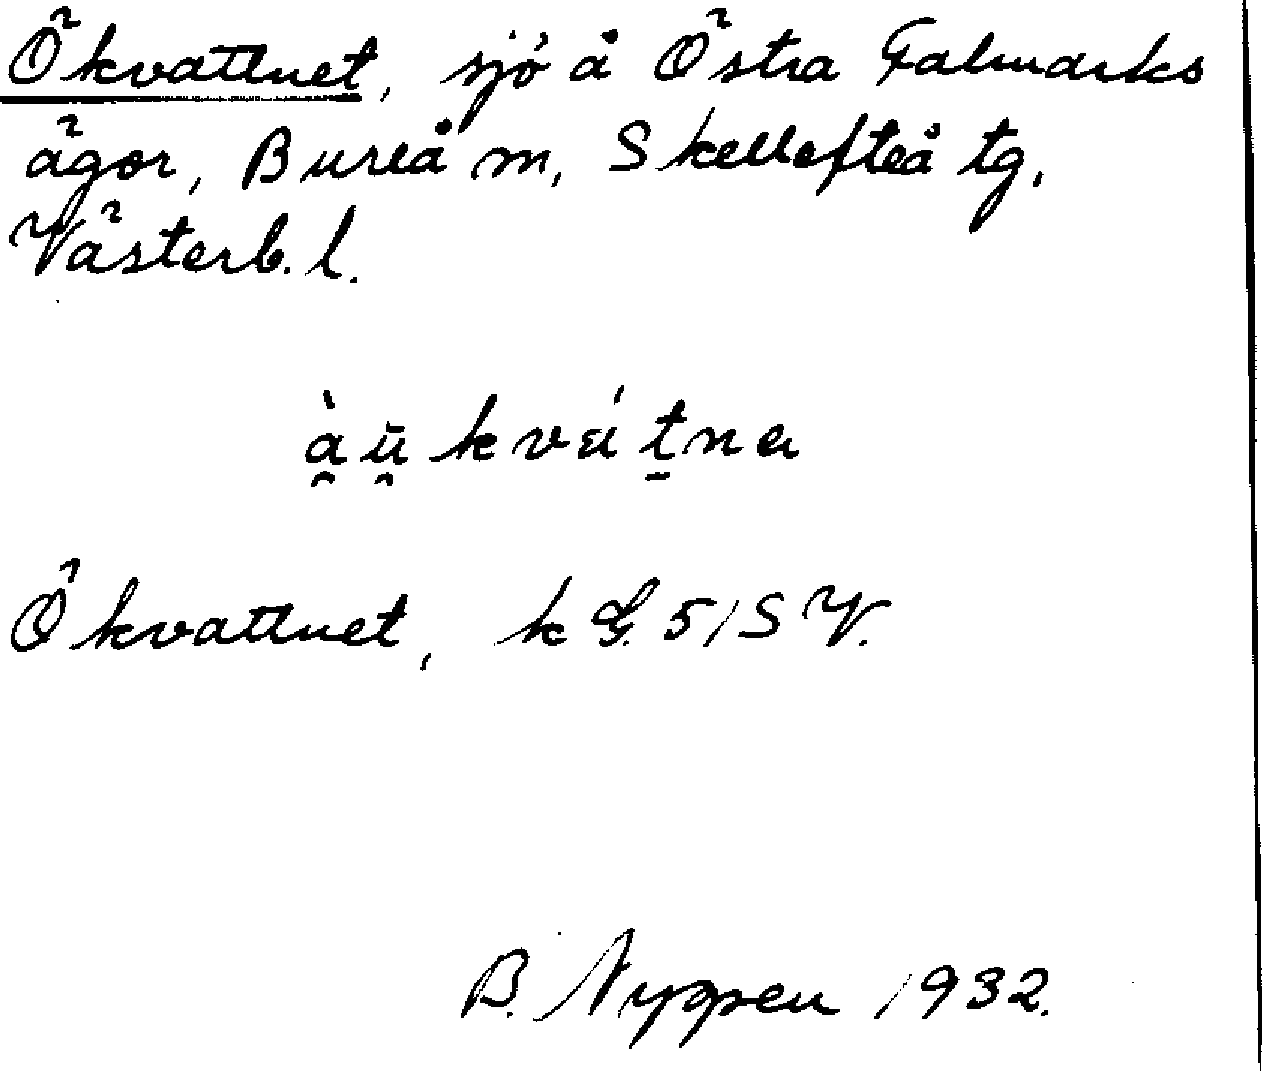 Ökvattnet, sjö å Östra Falmarks
ägor, Bureå m, Skellefteå tg,
Västerb. l.
Ökvattnet, k G. 5/SV.
B. Nyppen 1932.